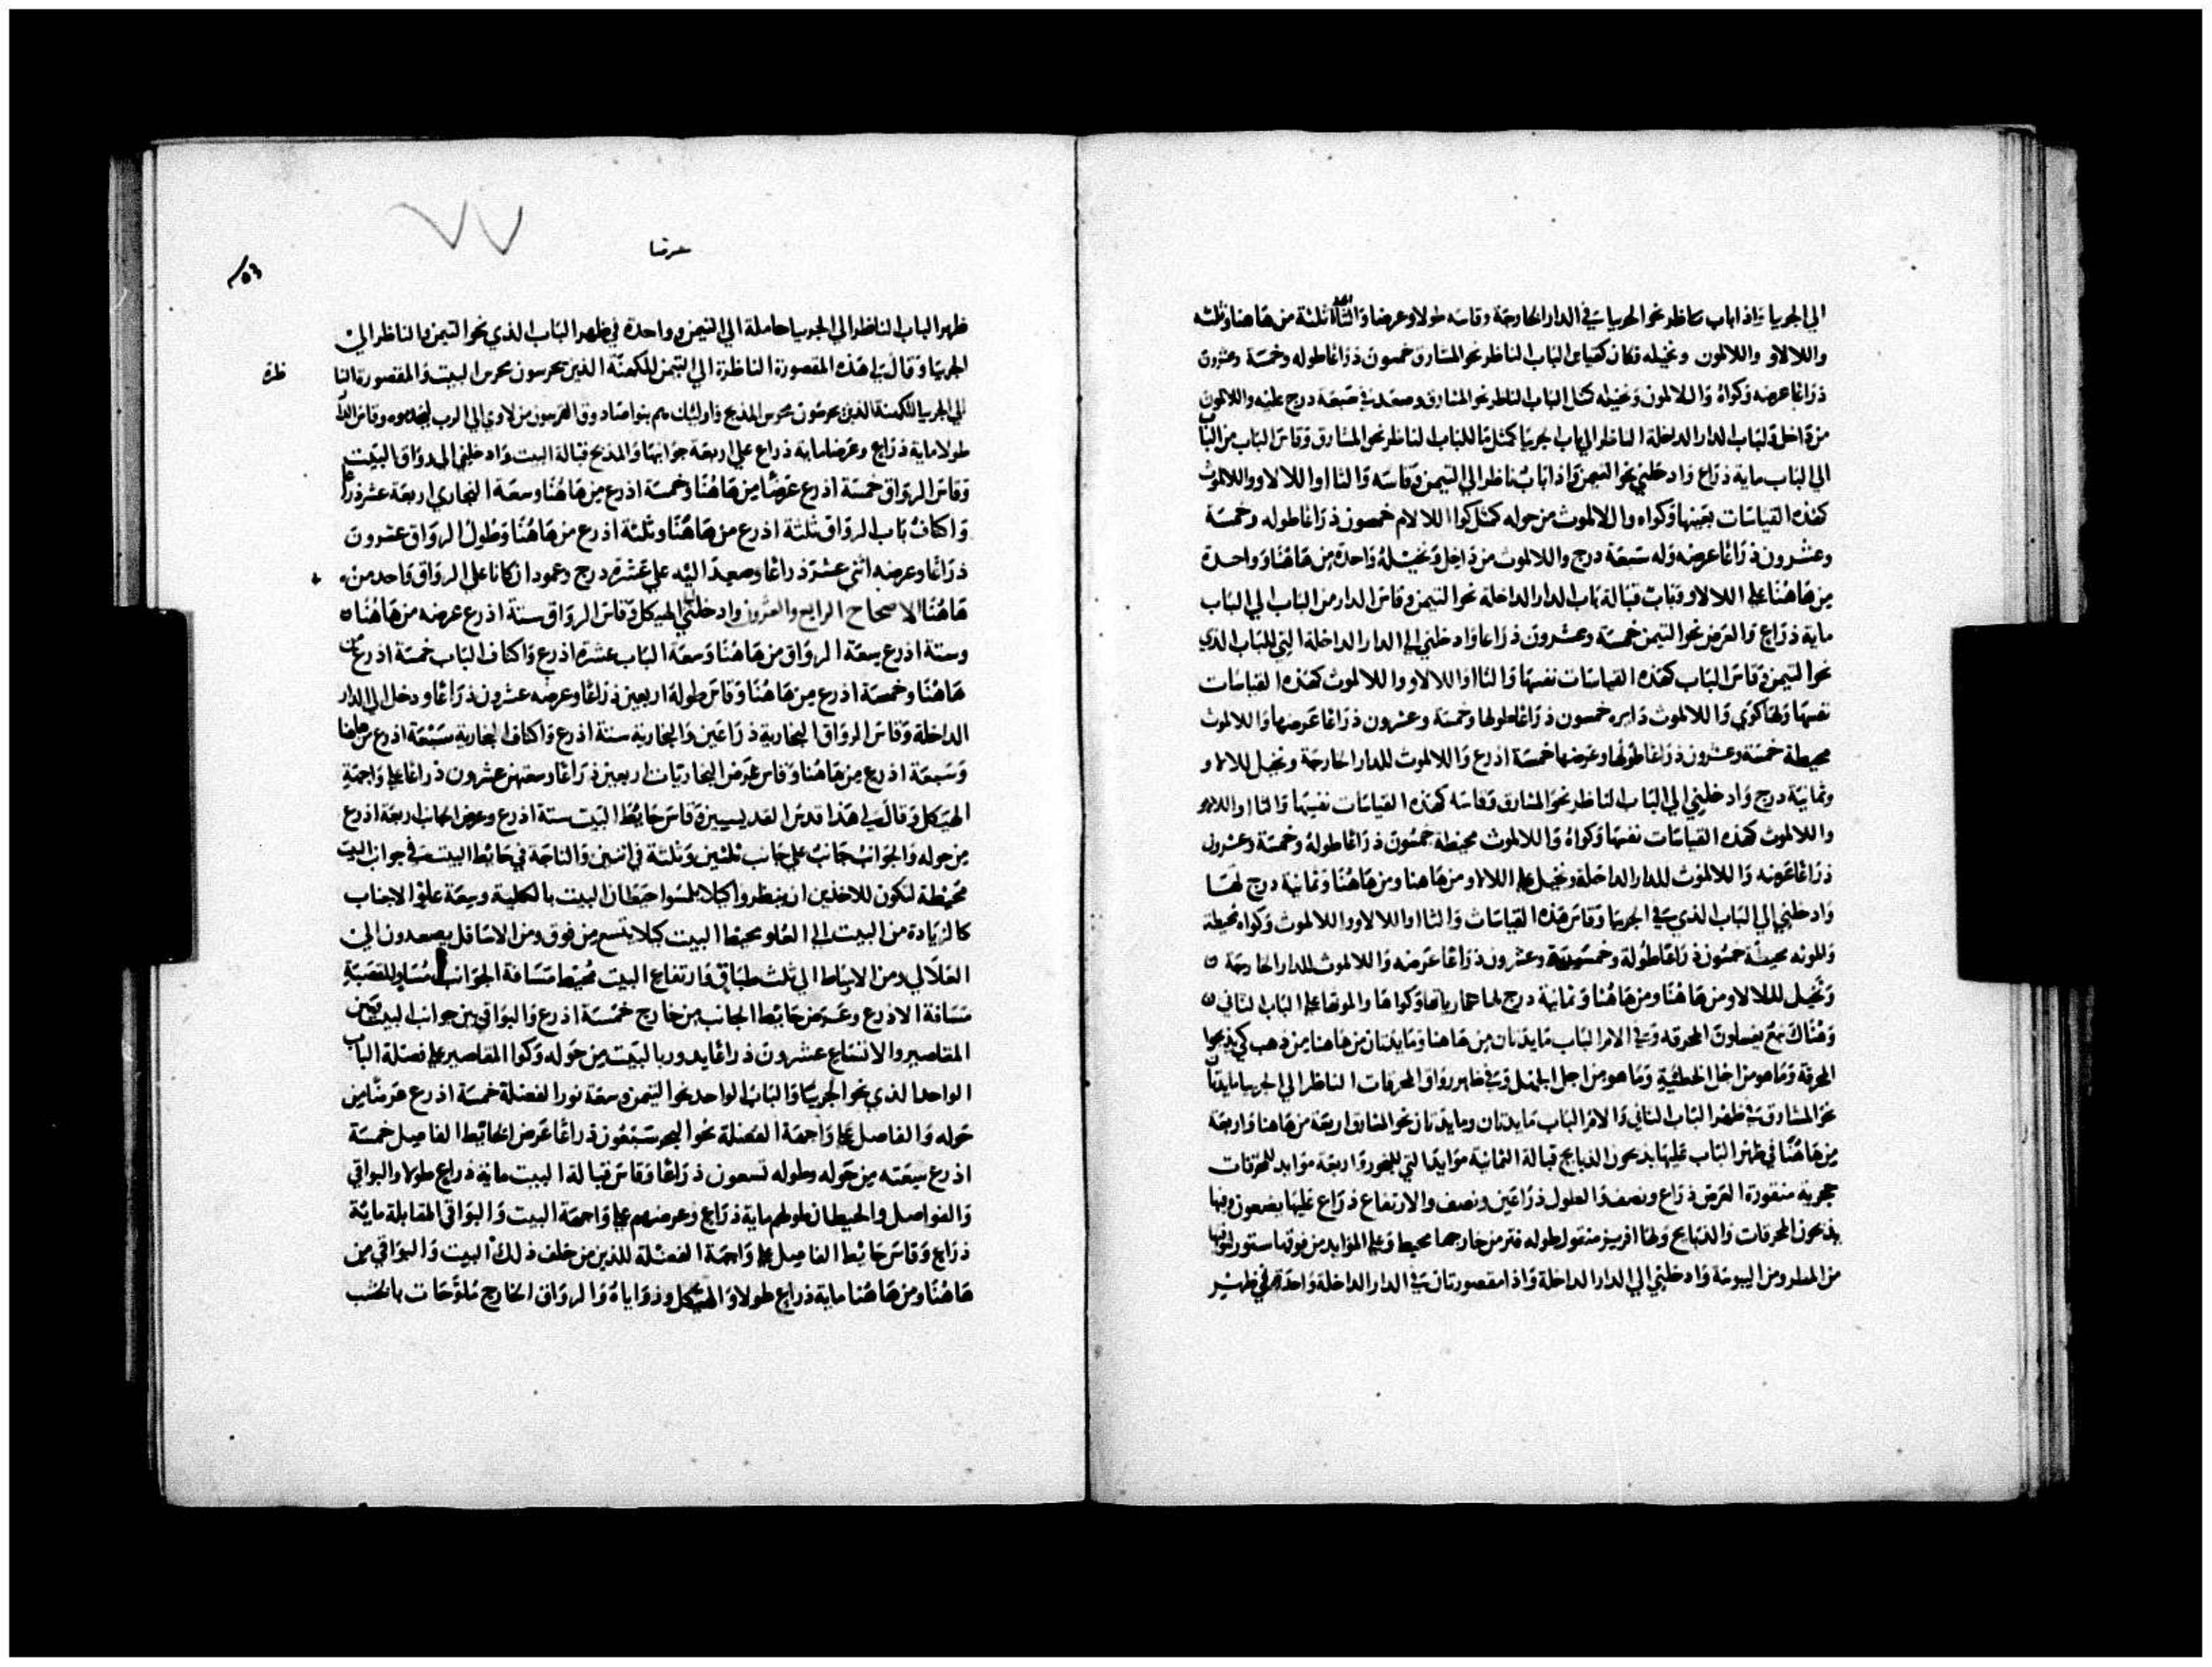 الي الجربيا واذا باب ناظر نحو الجربيا في الدار الخارجة وقاسه طولا وعرضا والثاا ثلثة من هاهنا وثلثه
واللالاو واللالمون ونخيله فكان كقياس الباب الناظر نحو المشارق خمسون ذراعا طوله وخمسة وعشرون
ذراعا عرضه وكواه واللالمون ونخيله كمثل الباب الناظر نحو المشارق وصعد في سبعة درج عليه واللالمون
من داخل وباب الدار الداخلة الناظر الي باب الجربيا كمثل ما للباب الناظر نحو المشارق وقاس الباب من الباب
الي الباب ماية ذراع وادخلني نحو التيمن واذا باب ناظر الي التيمن وقاسه والثااو اللالاو واللالموث
كهذه القياسات بعينها وكواه واللالموث من حوله كمثل كوا اللالام خمسون ذراعا طوله وخمسة
وعشرون ذراعا عرضه وله سبعة درج واللالموث من داخل ونخيله واحدة من هاهنا وواحدة
من هاهنا علي اللالاو وباب قبالة باب الدار الداخلة نحو التيمن وقاس الدار من الباب الي الباب
ماية ذراع والعرض نحو التيمن خمسة وعشرون ذراعا وادخلني الي الدار الداخلة التي للباب الذي
نحو التيمن وقاس الباب كهذه القياسات نفسها والثااو اللالاو واللالموث كهذه القياسات
نفسها ولها كوي واللالموث دايره خمسون ذراعا طولها وخمسة وعشرون ذراعا عرضها واللالموث
محيطة خمسة وعشرون ذراعا طولها وعرضها خمسة اذرع واللالموث للدار الخارجة ونخيل لللالاو
وثمانية درج وادخلني الي الباب الناظر نحو المشارق وقاسه كهذه القياسات نفسها والثااو اللالاو
واللالموث كهذه القياسات نفسها وكواه واللالموث محيطة خمسون ذراعا طوله وخمسة وعشرون
ذراعا عرضه واللالموث للدار الداخلة ونخيل علي اللالاو من هاهنا ومن هاهنا وثمانية درج لها
وادخلني الي الباب الذي في الجربيا وقاس هذه القياسات والثااو اللالاو واللالموث وكواه محيطة
والمونه محيطة خمسون ذراعا طوله وخمسة وعشرون ذراعا عرضه واللالموث للدار الخارجة
ونخيل لللالاو من هاهنا ومن هاهنا وثمانية درج لها وكواها والمونها علي الباب الثاني
وهناك نبع يغسلون المحرقه وفي الامر الباب مايدتان من هاهنا ومايدتان من هاهنا من ذهب كي يذبحوا
المحرقة وما هو من اجل الخطية وما هو من اجل الجهل وفي ظاهر رواق المحرقات الناظر الي الجربيا مايدتان
نحو المشارق في ظهر الباب الثاني والامر الباب مايدتان ومايدتان نحو المشارق اربعة من هاهنا واربعة
من هاهنا في ظهر الباب عليها يذبحون الذبايح قبالة الثمانية موايد التي للبخور واربعة موايد للمحرقات
حجرية منقورة العرض ذراع ونصف والطول ذراعين ونصف والارتفاع ذراع عليها يضعون وبها
يذبحون المحرقات والذبايح ولها افريز منقول طوله فتر من خارجها محيط وعلي الموايد من فوقها ستور لتقيها
من المطر ومن اليبوسة وادخلني الي الدار الداخلة واذا مقصورتان في الدار الداخلة واحدة في ظهر
٥٣
ظهر الباب الناظر الي الجربيا حاملة الي التيمن وواحدة في ظهر الباب الذي نحو التيمن والناظر الي
الجربيا وقال لي هذه المقصورة الناظرة الي التيمن للكهنة الذين يحرسون محرس البيت والمقصورة النا
ظرة
الي الجربيا للكهنة الذين يحرسون محرس المذبح واوليك هم بنو اصادوق القريبون من لاوي الي الرب ليخدموه وقاس الدار
طولا ماية ذراع وعرضا ماية ذراع علي اربعة جوانبها والمذبح قبالة البيت وادخلني الي رواق البيت
وقاس الرواق خمسة اذرع عرضا من هاهنا وخمسة اذرع من هاهنا وسعة النجاري اربعة عشر ذراعا
واكتاف باب الرواق ثلثة اذرع من هاهنا وثلثة اذرع من هاهنا وطول الرواق عشرون
ذراعا وعرضه اثني عشر ذراعا وصعد اليه علي عشرة درج وعمودان كانا علي الرواق واحد من
هاهنا الاصحاح الرابع والعشرون وادخلني الهيكل وقاس الرواق ستة اذرع عرضه من هاهنا
وستة اذرع سعة الرواق من هاهنا وسعة الباب عشرة اذرع واكتاف الباب خمسة اذرع من
هاهنا وخمسة اذرع من هاهنا وقاس طوله اربعين ذراعا وعرضه عشرون ذراعا ودخل الي الدار
الداخلة وقاس الرواق النجارية ذراعين والنجارية ستة اذرع واكتاف النجارية سبعة اذرع من هاهنا
وسبعة اذرع من هاهنا وقاس عرض النجاريات اربعين ذراعا وسعتهن عشرون ذراعا علي واجهة
الهيكل وقال لي هذا قدس القديسين وقاس حايط البيت ستة اذرع وعرض الجانب اربعة اذرع
من حوله والجوانب جانب علي جانب ثلثين وثلثة في اثنين والناجة في حايط البيت في جوانب البيت
محيطة لتكون للاخذين ان ينظروا كيلا يلمسوا حيطان البيت بالكلية وسعة علو الاجناب
كالزيادة من البيت الي العلو محيط البيت كيلا يتسع من فوق ومن الاسافل يصعدون الي
العلالي ومن الاوساط الي ثلث طباق وارتفاع البيت محيط مسافة الجوانب مساو للقصبة
مسافة الاذرع وعرض حايط الجانب من خارج خمسة اذرع والبواقي بين جوانب البيت وبين
المقاصير والاتساع عشرون ذراعا يدور بالبيت من حوله وكوا المقاصير علي فضلة الباب
الواحد الذي نحو الجربيا والباب الواحد نحو التيمن وسعة نور الفضلة خمسة اذرع عرضا من
حوله والفاصل علي واجهة الفضلة نحو البحر سبعون ذراعا عرض الحايط الفاصل خمسة
اذرع سعته من حوله وطوله تسعون ذراعا وقاس قبالة البيت ماية ذراع طولا والبواقي
والفواصل والحيطان طولهم ماية ذراع وعرضهم علي واجهة البيت والبواقي المقابلة ماية
ذراع وقاس حايط الفاصل علي واجهة الفضلة للذين من خلف ذلك البيت والبواقي من
هاهنا ومن هاهنا ماية ذراع طولا والهيكل وزواياه والرواق الخارج ملوحات بالخشب